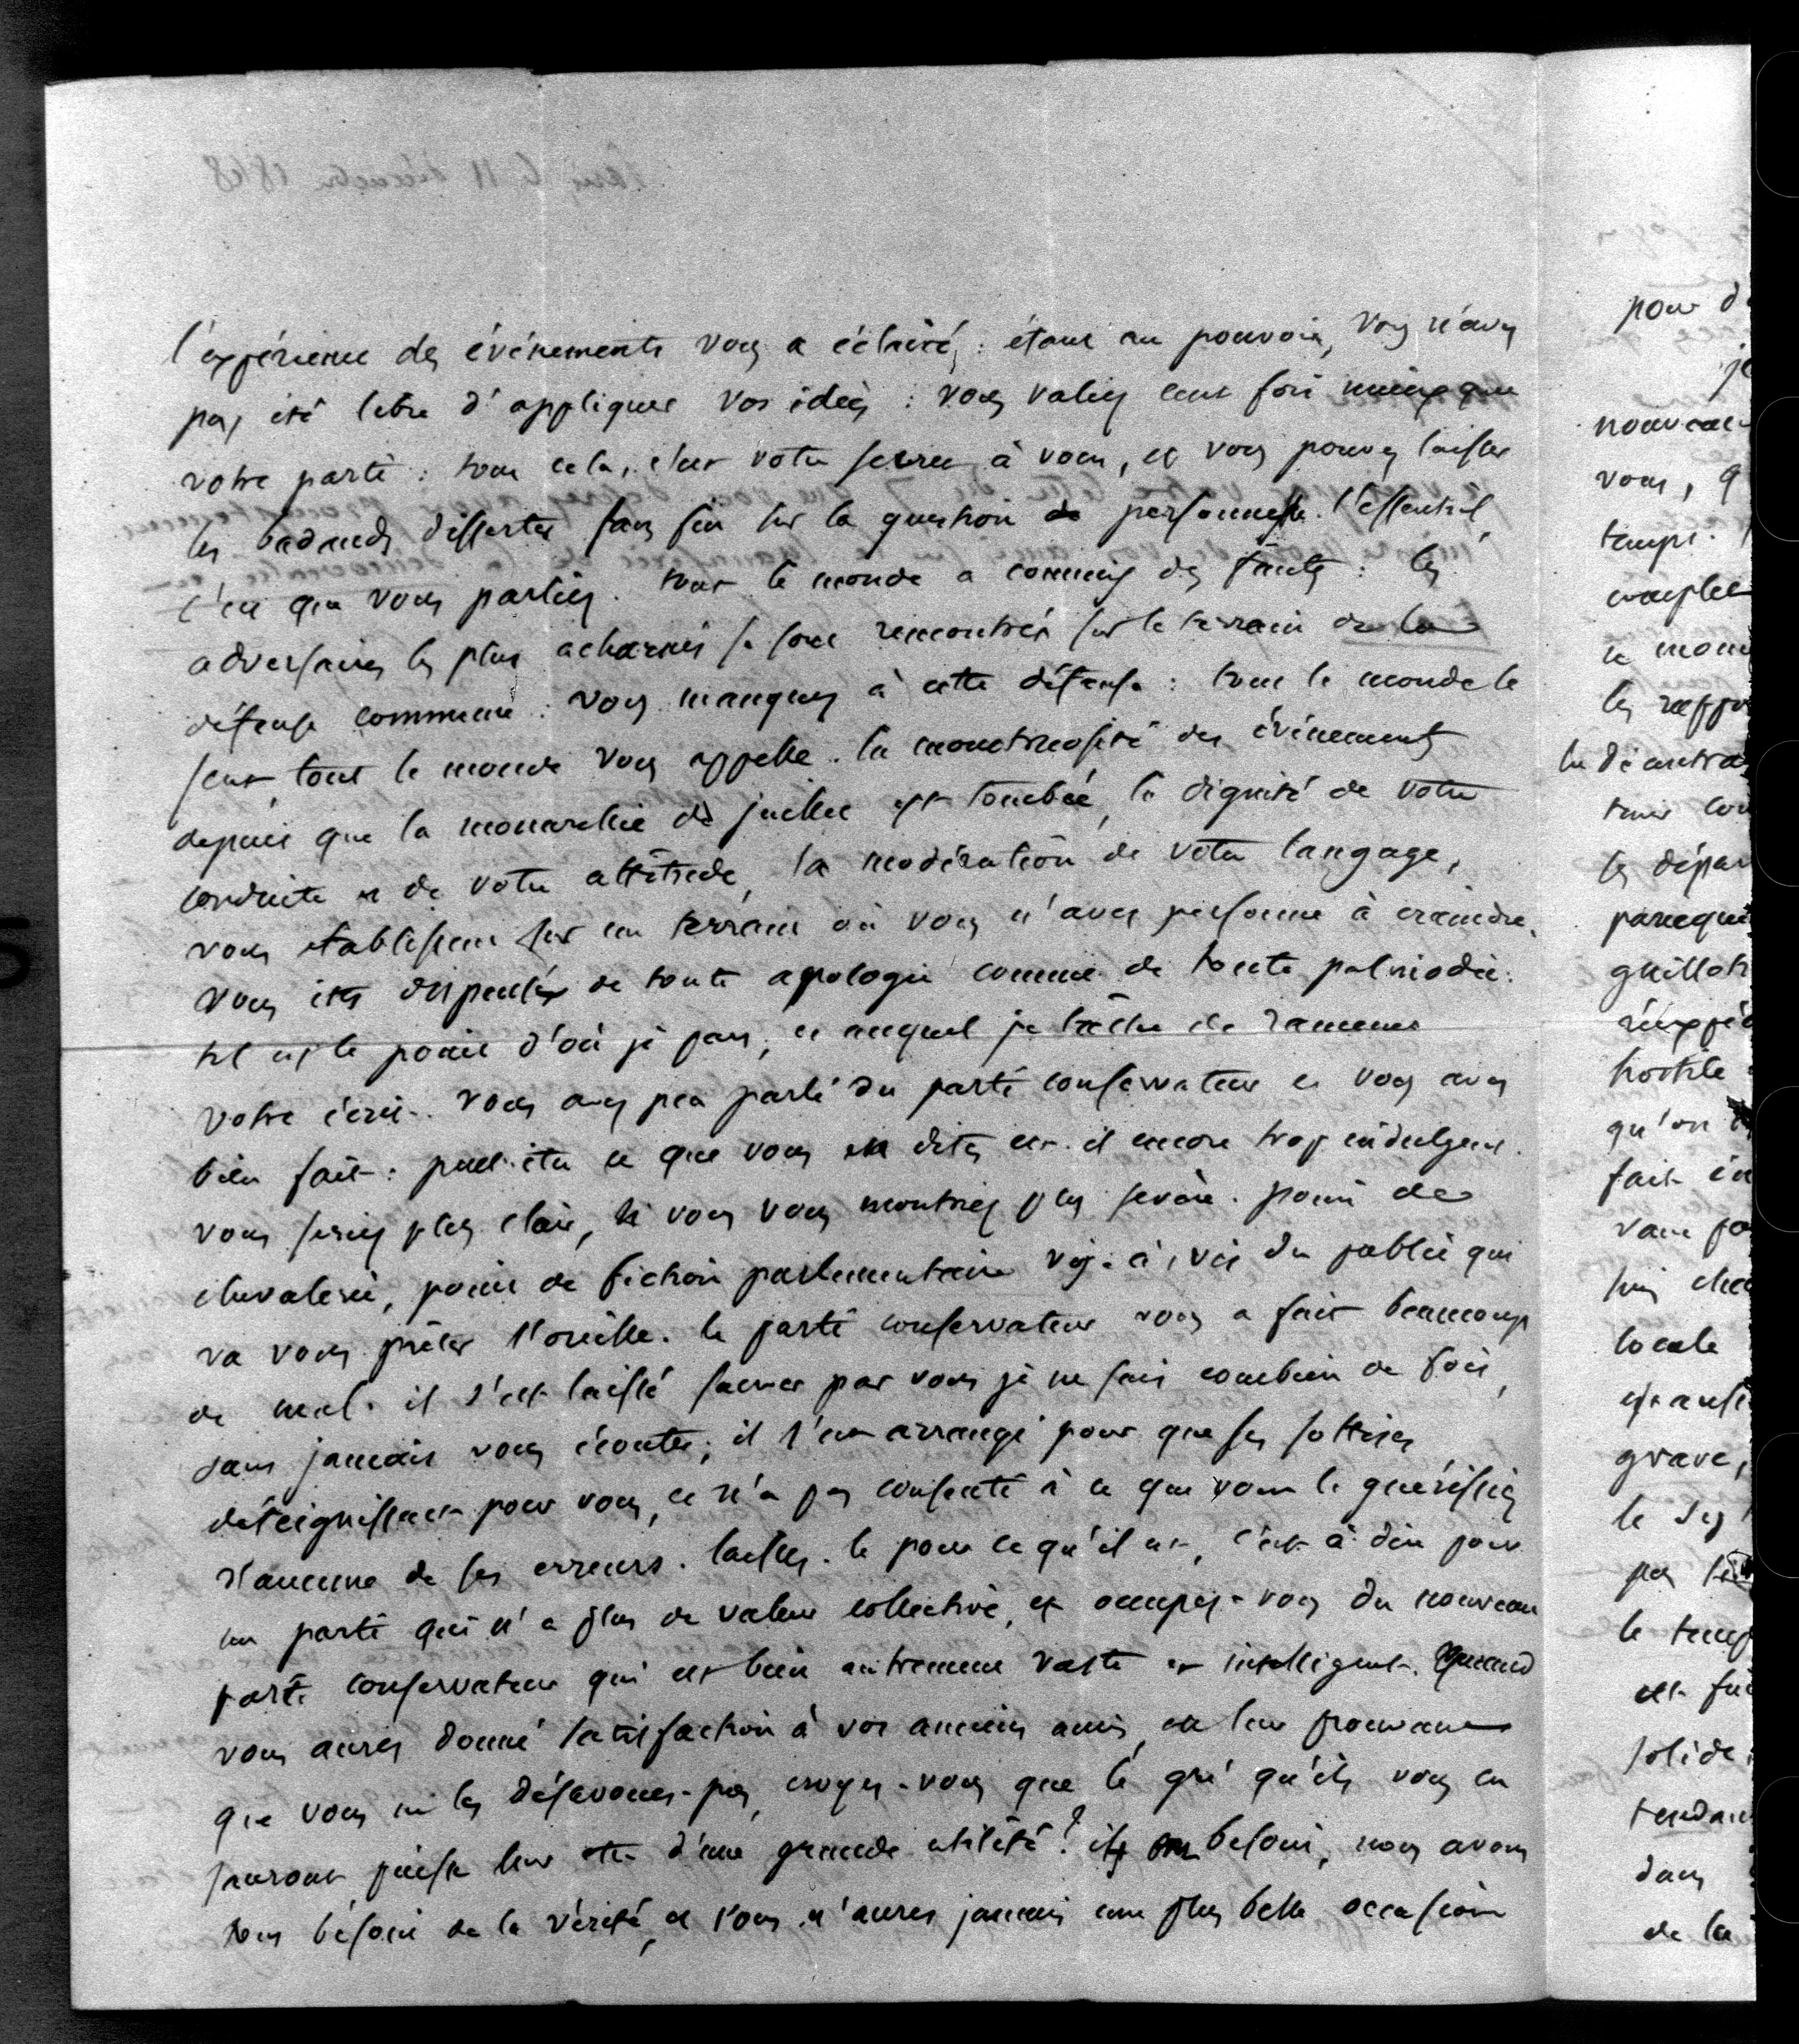 l'expérience des événements vous a éclairé; étant au pouvoir, vous n'avez
pas été libre d'appliquer vos idées : vous valiez cent fois mieux que
votre parti : tout cela, c'est votre secret à vous, et vous pouvez laisser
les badauds disserter sans fin sur la question de personnes. l'essentiel,
c'est que vous parliez. tout le monde a commis des fautes : les
adversaires les plus acharnés se sont rencontrés sur le terrain de la
défense commune : vous manquez à cette défense : tout le monde le
sent, tout le monde vous appelle. la monstruosité des événements
depuis que la monarchie de juillet est tombée, la dignité de votre
conduite et de votre attitude, la modération de votre langage,
vous établissent sur un terrain où vous n'avez personne à craindre.
vous êtes dispensé de toute apologie comme de toute palinodie.
tel est le point d'où je pars, et auquel je tâche de ramener
votre écrit. vous avez peu parlé du parti conservateur et vous avez
bien fait : peut-être ce que vous en dites est-il encore trop indulgent.
vous seriez plus clair, si vous vous montriez plus sévère. point de
chevalerie, point de fiction parlementaire vis-à-vis du public qui
va vous prêter l'oreille. le parti conservateur vous a fait beaucoup
de mal. il s'est laissé sauver par vous je ne sais combien de fois,
sans jamais vous écouter; il s'est arrangé pour que ses sottises
déteignissent pour vous, et n'a pas consenti à ce que vous le guérissiez
d'aucune de ses erreurs. laissez-le pour ce qu'il est, c'est à dire pour
un parti qui n'a plus de valeur collective, et occupez-vous du nouveau
parti conservateur qui est bien autrement vaste et intelligent. Quand
vous aurez donné satisfaction à vos anciens amis, en leur prouvant
que vous ne les désavouez pas, croyez-vous que le gré qu'ils vous en
sauront puisse leur être d'une grande utilité? ils ont besoin, nous avons
tous besoin de la vérité, et vous n'aurez jamais une plus belle occasion
pour d
je
nouveau
vous, q
temps.
complet
le mon
les rappo
la démocra
tous
les dépar
parceque
guillot
hostile
qu'on
fait
locale
grave,
le
pas
le temp
est
solide
tendan
dans
de la